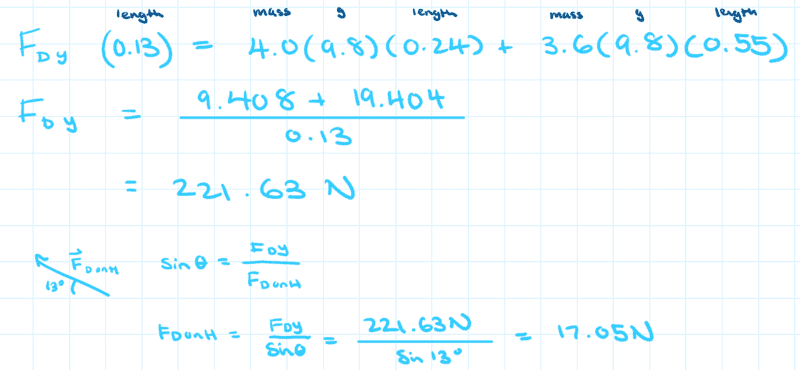 length mass g length mass g length
F_Dy (0.13) = 4.0(9.8)(0.24) + 3.6(9.8)(0.55)
F_Dy = (9.408 + 19.404) / 0.13
= 221.63 N
F⃗_DonH 13° sin θ = F_Dy / F_DonH
F_DonH = F_Dy / sin θ = 221.63N / sin 13° = 17.05N